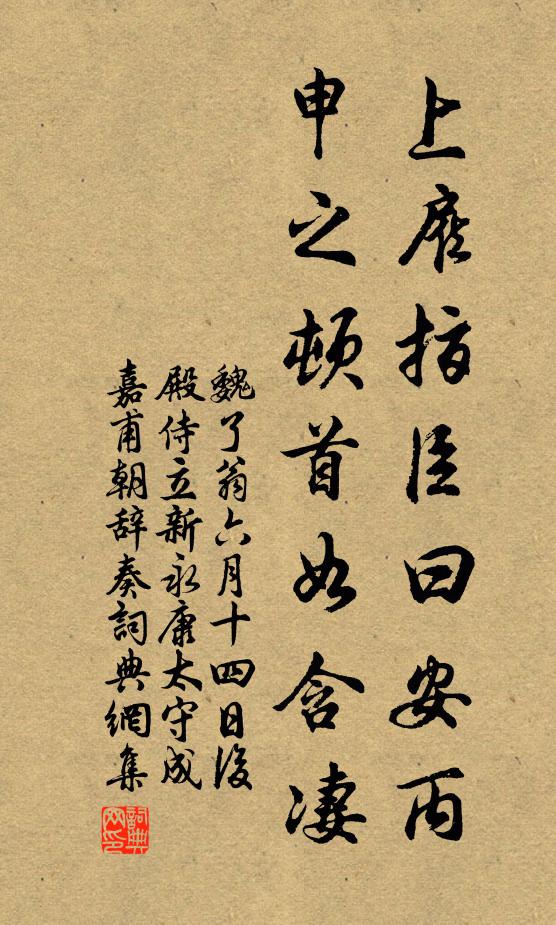 上雇指臣曰安丙
申之頓首如含凄
魏了翁六月十四日後
殿侍立新永康太守成
嘉甫朝辞奏詞典網集
詞典
网印